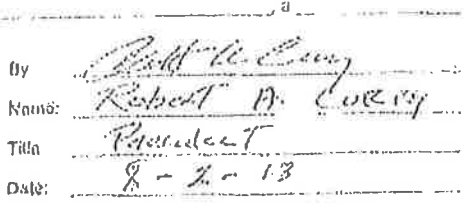 a
By
Name: Robert A.
Title President
Date: 8-2-13